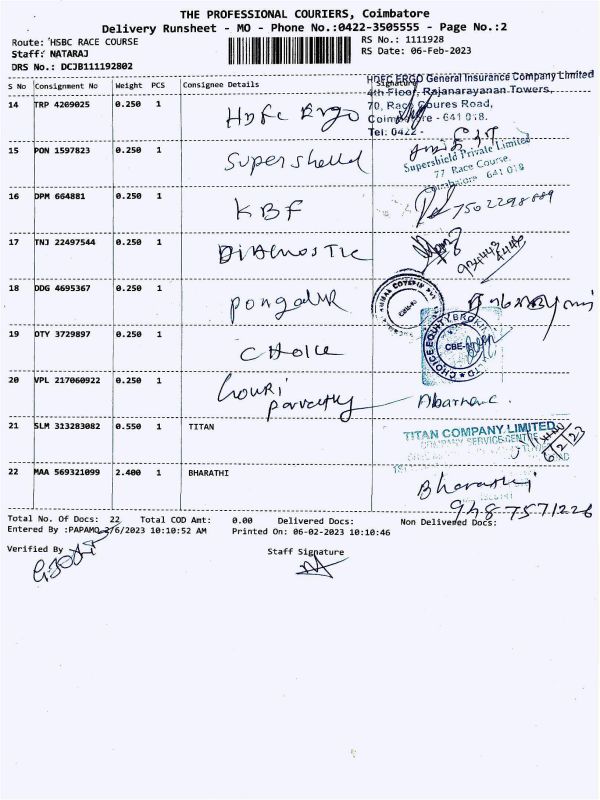 THE PROFESSIONAL COURIERS, Coimbatore
Delivery Runsheet - MO - Phone No.:0422-3505555 - Page No.:2
Route: HSBC RACE COURSE
Staff: NATARAJ
DRS No.: DCJB111192802
RS No.: 1111928
RS Date: 06-Feb-2023
S No Consignment No Weight PCS Consignee Details Signature
HDFC ERGO General Insurance Company Limited
4th Floor, Rajanarayanan Towers,
70, Race Coures Road,
Coimbatore - 641 018.
Tel: 0422 -
14 TRP 4269025 0.250 1 HDFC Ergo
15 PON 1597823 0.250 1 Supershield
Supershield Private Limited
77 Race Course,
Coimbatore 641 018
16 DPM 664881 0.250 1 KBF 7502298889
17 TNJ 22497544 0.250 1 DIAGNOSTIC
18 DDG 4695367 0.250 1 Pongalur
19 DTY 3729897 0.250 1 CHOICE
CHOICE EQUITY BROKING
CBE-
20 VPL 217060922 0.250 1 Gouri
Parvathy
21 SLM 313283082 0.550 1 TITAN
TITAN COMPANY LIMITED
COMPANY SERVICE CENTRE
6/2/23
22 MAA 569321099 2.400 1 BHARATHI Bharathi
9487571226
Total No. Of Docs: 22 Total COD Amt: 0.00 Delivered Docs: Non Delivered Docs:
Entered By :PAPAMO 2/6/2023 10:10:52 AM Printed On: 06-02-2023 10:10:46
Verified By Staff Signature